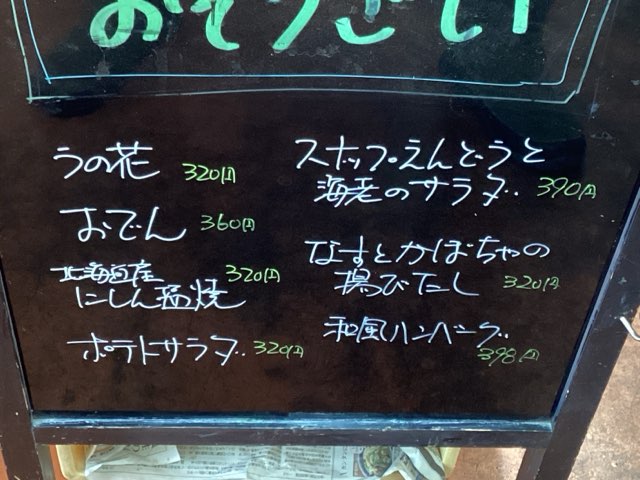 おそうざい
うの花 320円
おでん 360円
北海道産 320円
にしん塩焼
ポテトサラダ 320円
スナップえんどうと
海老のサラダ 390円
なすとかぼちゃの
揚びたし 320円
和風ハンバーグ
398円